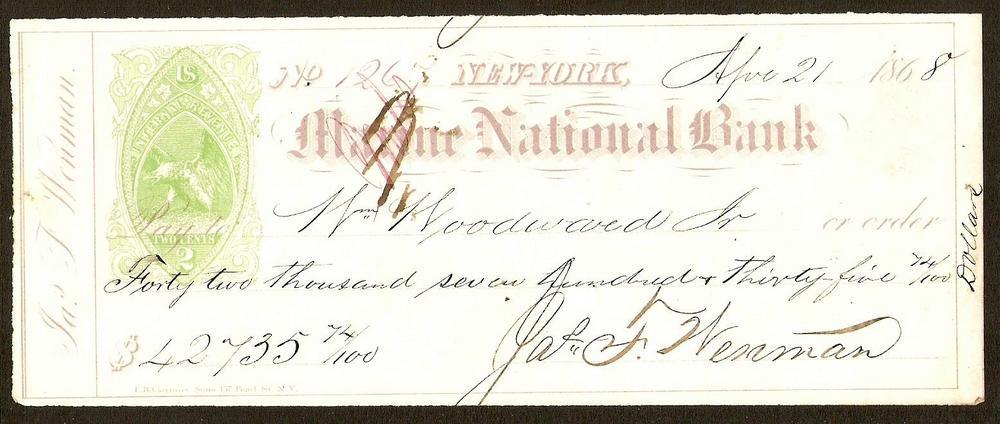 Jas. F. Wenman.
US
INTER. REVENUE
TWO CENTS
2
No. 1265 NEW-YORK, Apr 21 1868
Marine National Bank
Pay to Wm Woodward Jr or order
Forty two thousand seven hundred & thirty five 74/100 Dollars
$42735 74/100
Jas. F. Wenman